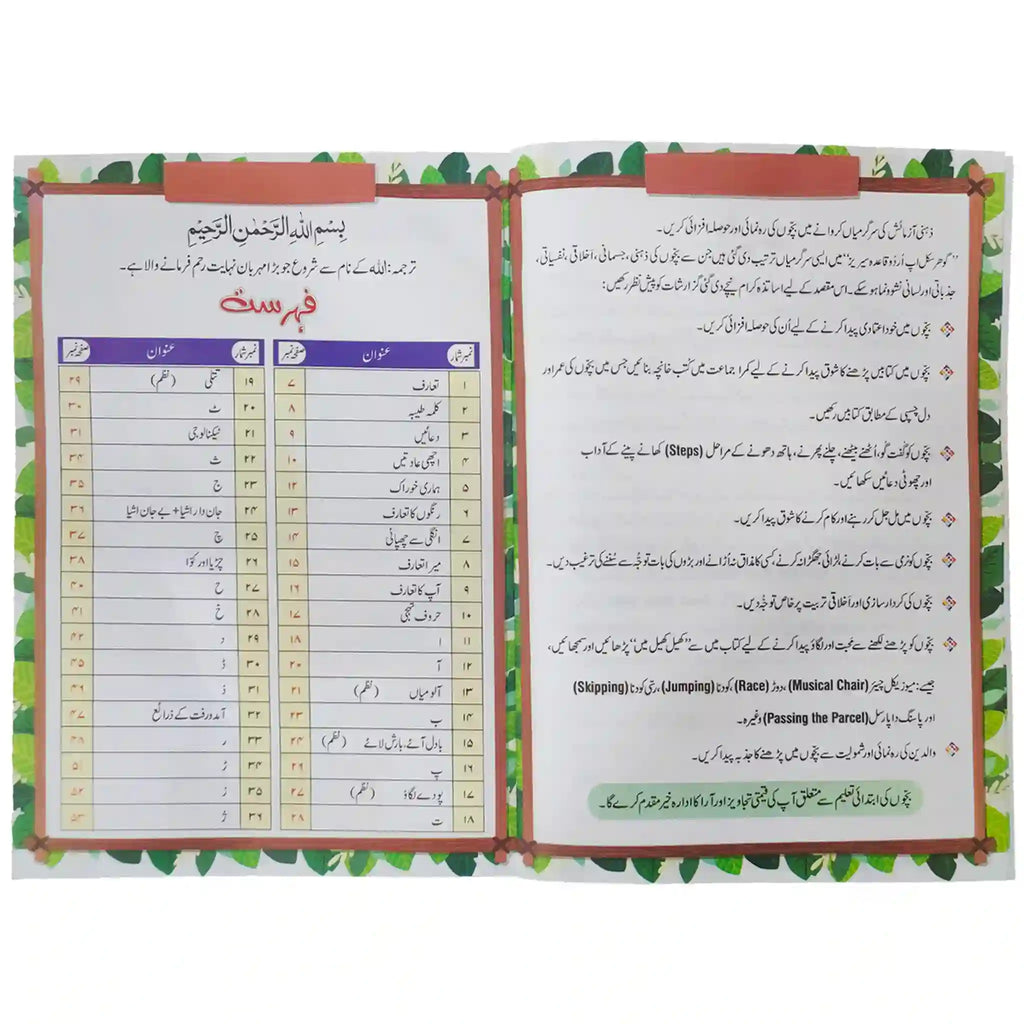 ذہنی آزمائش کی سرگرمیاں کروانے میں بچّوں کی رہ نمائی اور حوصلہ افزائی کریں۔
"گوھر سکل اپ اُردُو قاعدہ سیریز" میں ایسی سرگرمیاں ترتیب دی گئی ہیں جن سے بچّوں کی ذہنی، جسمانی، اَخلاقی، نفسیاتی،
جذباتی اور لسانی نشوونما ہو سکے۔ اس مقصد کے لیے اساتذہ کرام نیچے دی گئی گزارشات کو پیش نظر رکھیں:
بچّوں میں خود اعتمادی پیدا کرنے کے لیے اُن کی حوصلہ افزائی کریں۔
بچّوں میں کتابیں پڑھنے کا شوق پیدا کرنے کے لیے کمرا جماعت میں کُتب خانچہ بنائیں جس میں بچّوں کی عمر اور
دل چسپی کے مطابق کتابیں رکھیں۔
بچّوں کو گُفت گو، اُٹھنے بیٹھنے، چلنے پھرنے، ہاتھ دھونے کے مراحل (Steps) کھانے پینے کے آداب
اور چھوٹی دعائیں سکھائیں۔
بچّوں میں مل جل کر رہنے اور کام کرنے کا شوق پیدا کریں۔
بچّوں کو نرمی سے بات کرنے، لڑائی جھگڑا نہ کرنے، کسی کا مذاق نہ اُڑانے اور بڑوں کی بات توجّہ سے سُننے کی ترغیب دیں۔
بچّوں کی کردار سازی اور اَخلاقی تربیت پر خاص توجّہ دیں۔
بچّوں کو پڑھنے لکھنے سے محبت اور لگاؤ پیدا کرنے کے لیے کتاب میں سے "کھیل کھیل میں" پڑھائیں اور سمجھائیں،
جیسے: میوزیکل چیئر (Musical Chair)، دوڑ (Race)، کودنا (Jumping)، رسّی کودنا (Skipping)
اور پاسنگ دا پارسل (Passing the Parcel) وغیرہ۔
والدین کی رہ نمائی اور شمولیت سے بچّوں میں پڑھنے کا جذبہ پیدا کریں۔
بچّوں کی ابتدائی تعلیم سے متعلق آپ کی قیمتی تجاویز اور آرا کا ادارہ خیر مقدم کرے گا۔
بِسْمِ اللهِ الرَّحْمٰنِ الرَّحِيْمِ
ترجمہ: اللہ کے نام سے شروع جو بڑا مہربان نہایت رحم فرمانے والا ہے۔
فہرست
نمبر شمار عنوان صفحہ نمبر
۱ تعارف ۷
۲ کلمہ طیبہ ۸
۳ دعائیں ۹
۴ اچھی عادتیں ۱۰
۵ ہماری خوراک ۱۲
۶ رنگوں کا تعارف ۱۳
۷ انگلی سے چھپائی ۱۴
۸ میرا تعارف ۱۵
۹ آپ کا تعارف ۱۶
۱۰ حروف تہجی ۱۷
۱۱ ا ۱۸
۱۲ آ ۲۰
۱۳ آلو میاں (نظم) ۲۱
۱۴ ب ۲۳
۱۵ بادل آئے، بارش لائے (نظم) ۲۴
۱۶ پ ۲۶
۱۷ پودے لگاؤ (نظم) ۲۷
۱۸ ت ۲۸
نمبر شمار عنوان صفحہ نمبر
۱۹ تتلی (نظم) ۲۹
۲۰ ٹ ۳۰
۲۱ ٹیکنالوجی ۳۱
۲۲ ث ۳۴
۲۳ ج ۳۵
۲۴ جان دار اشیا + بے جان اشیا ۳۶
۲۵ چ ۳۷
۲۶ چڑیا اور کوّا ۳۸
۲۷ ح ۴۰
۲۸ خ ۴۱
۲۹ د ۴۲
۳۰ ڈ ۴۵
۳۱ ذ ۴۶
۳۲ آمدورفت کے ذرائع ۴۷
۳۳ ر ۴۸
۳۴ ڑ ۵۱
۳۵ ز ۵۲
۳۶ ژ ۵۳